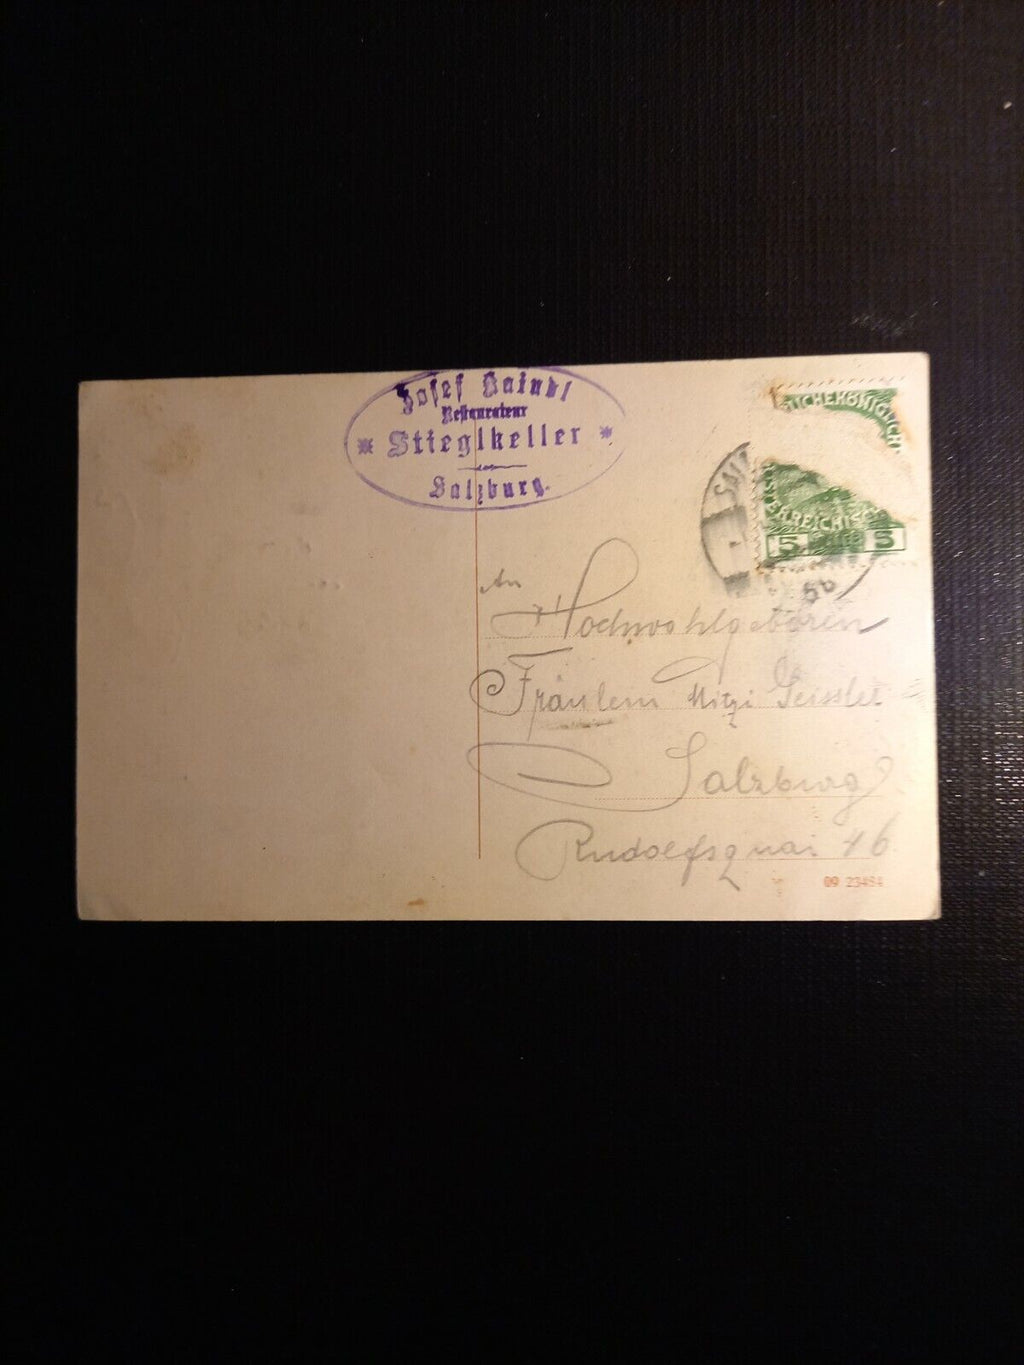 Josef Baindl
Restaurateur
* Stieglkeller *
Salzburg.
KÖNIGLICHE
5 5
An
Hochwohlgeboren
Fräulein Mitzi Geissler
Salzburg
Rudolfsquai 46
09 23484